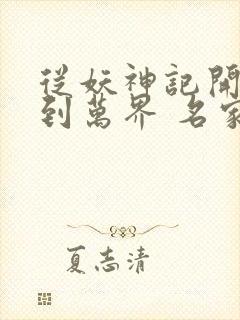 從妖神記開
到萬界 名家
夏志清